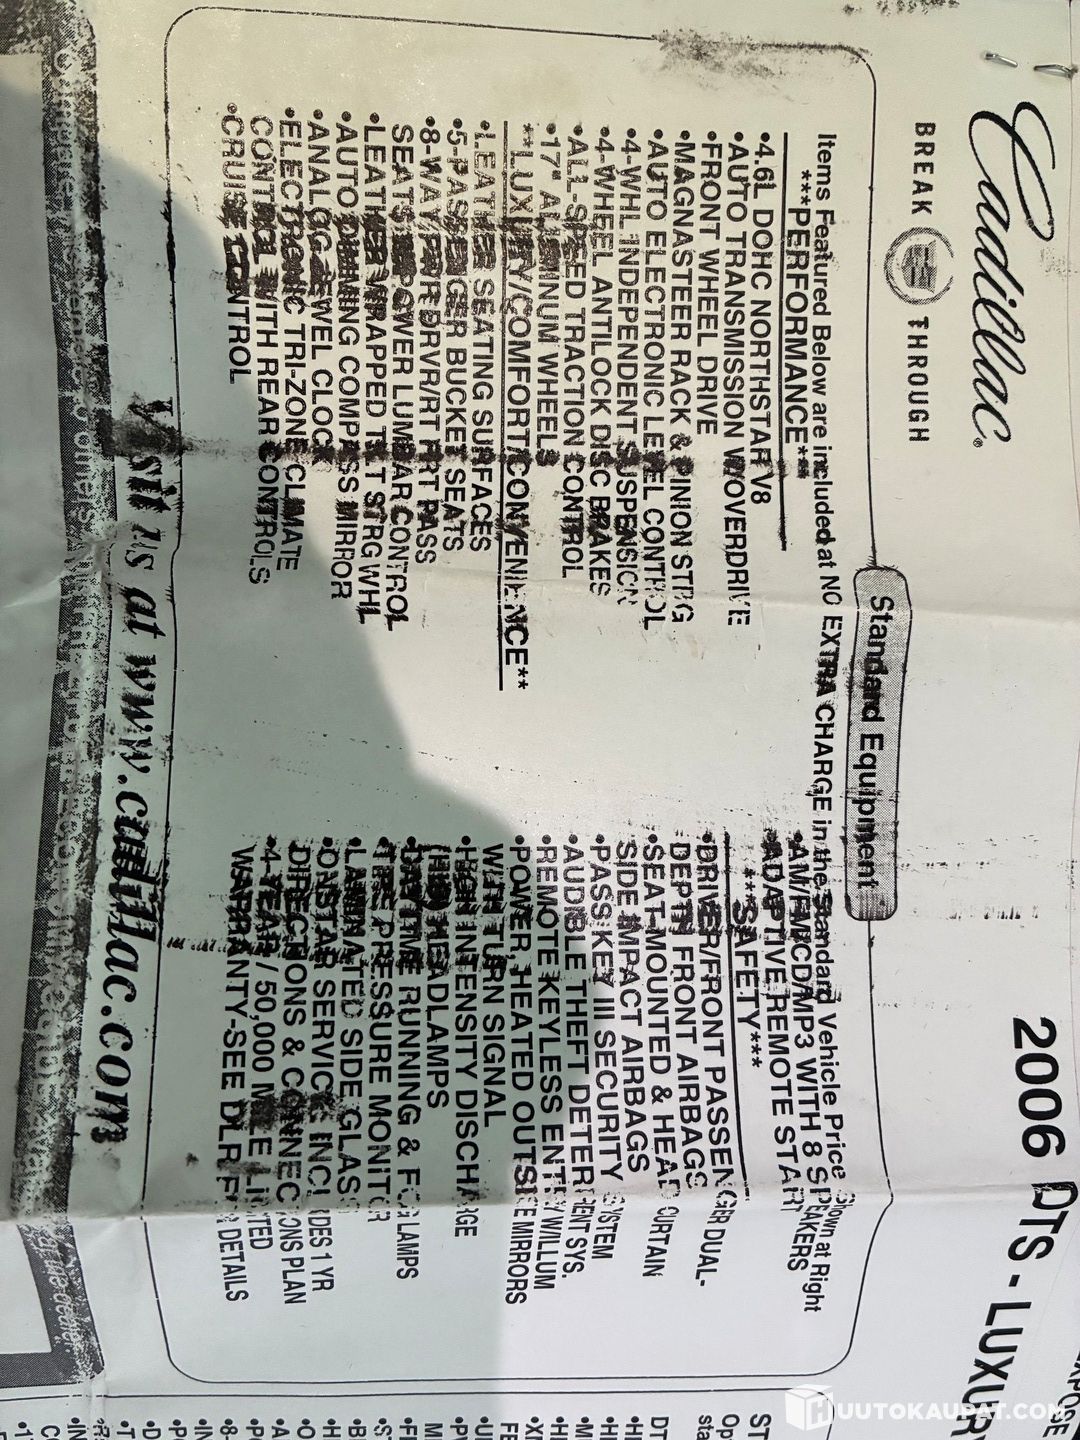 Cadillac®
BREAK THROUGH
2006 DTS - LUXUR
Standard Equipment
Items Featured Below are included at NO EXTRA CHARGE in the Standard Vehicle Price Shown at Right
***PERFORMANCE***
•4.6L DOHC NORTHSTAR V8
•AUTO TRANSMISSION W/OVERDRIVE
•FRONT WHEEL DRIVE
•MAGNASTEER RACK & PINION STRG
•AUTO ELECTRONIC LEVEL CONTROL
•4-WHL INDEPENDENT SUSPENSION
•4-WHEEL ANTILOCK DISC BRAKES
•ALL-SPEED TRACTION CONTROL
•17" ALUMINUM WHEELS
**LUXURY/COMFORT/CONVENIENCE**
•LEATHER SEATING SURFACES
•5-PASSENGER BUCKET SEATS
•8-WAY PWR DRVR/RT FRT PASS
SEATS POWER LUMBAR CONTROL
•LEATHER WRAPPED TILT STRG WHL
•AUTO DIMMING COMPASS MIRROR
•ANALOG JEWEL CLOCK
•ELECTRONIC TRI-ZONE CLIMATE
CONTROL WITH REAR CONTROLS
•CRUISE CONTROL
•AM/FM/CD/MP3 WITH 8 SPEAKERS
•ADAPTIVE REMOTE START
***SAFETY***
•DRIVER/FRONT PASSENGER DUAL-
DEPTH FRONT AIRBAGS
•SEAT-MOUNTED & HEAD CURTAIN
SIDE IMPACT AIRBAGS
•PASS KEY III SECURITY SYSTEM
•AUDIBLE THEFT DETERRENT SYS.
•REMOTE KEYLESS ENTRY W/ILLUM
•POWER, HEATED OUTSIDE MIRRORS
WITH TURN SIGNAL
•HIGH INTENSITY DISCHARGE
HEADLAMPS
•DAYTIME RUNNING & FOG LAMPS
•TIRE PRESSURE MONITOR
•LAMINATED SIDE GLASS
•ONSTAR SERVICE INCLUDES 1 YR
DIRECTIONS & CONNECTIONS PLAN
•4-YEAR / 50,000 MILE LIMITED
WARRANTY-SEE DLR FOR DETAILS
Visit us at www.cadillac.com
HUUTOKAUPAT.COM